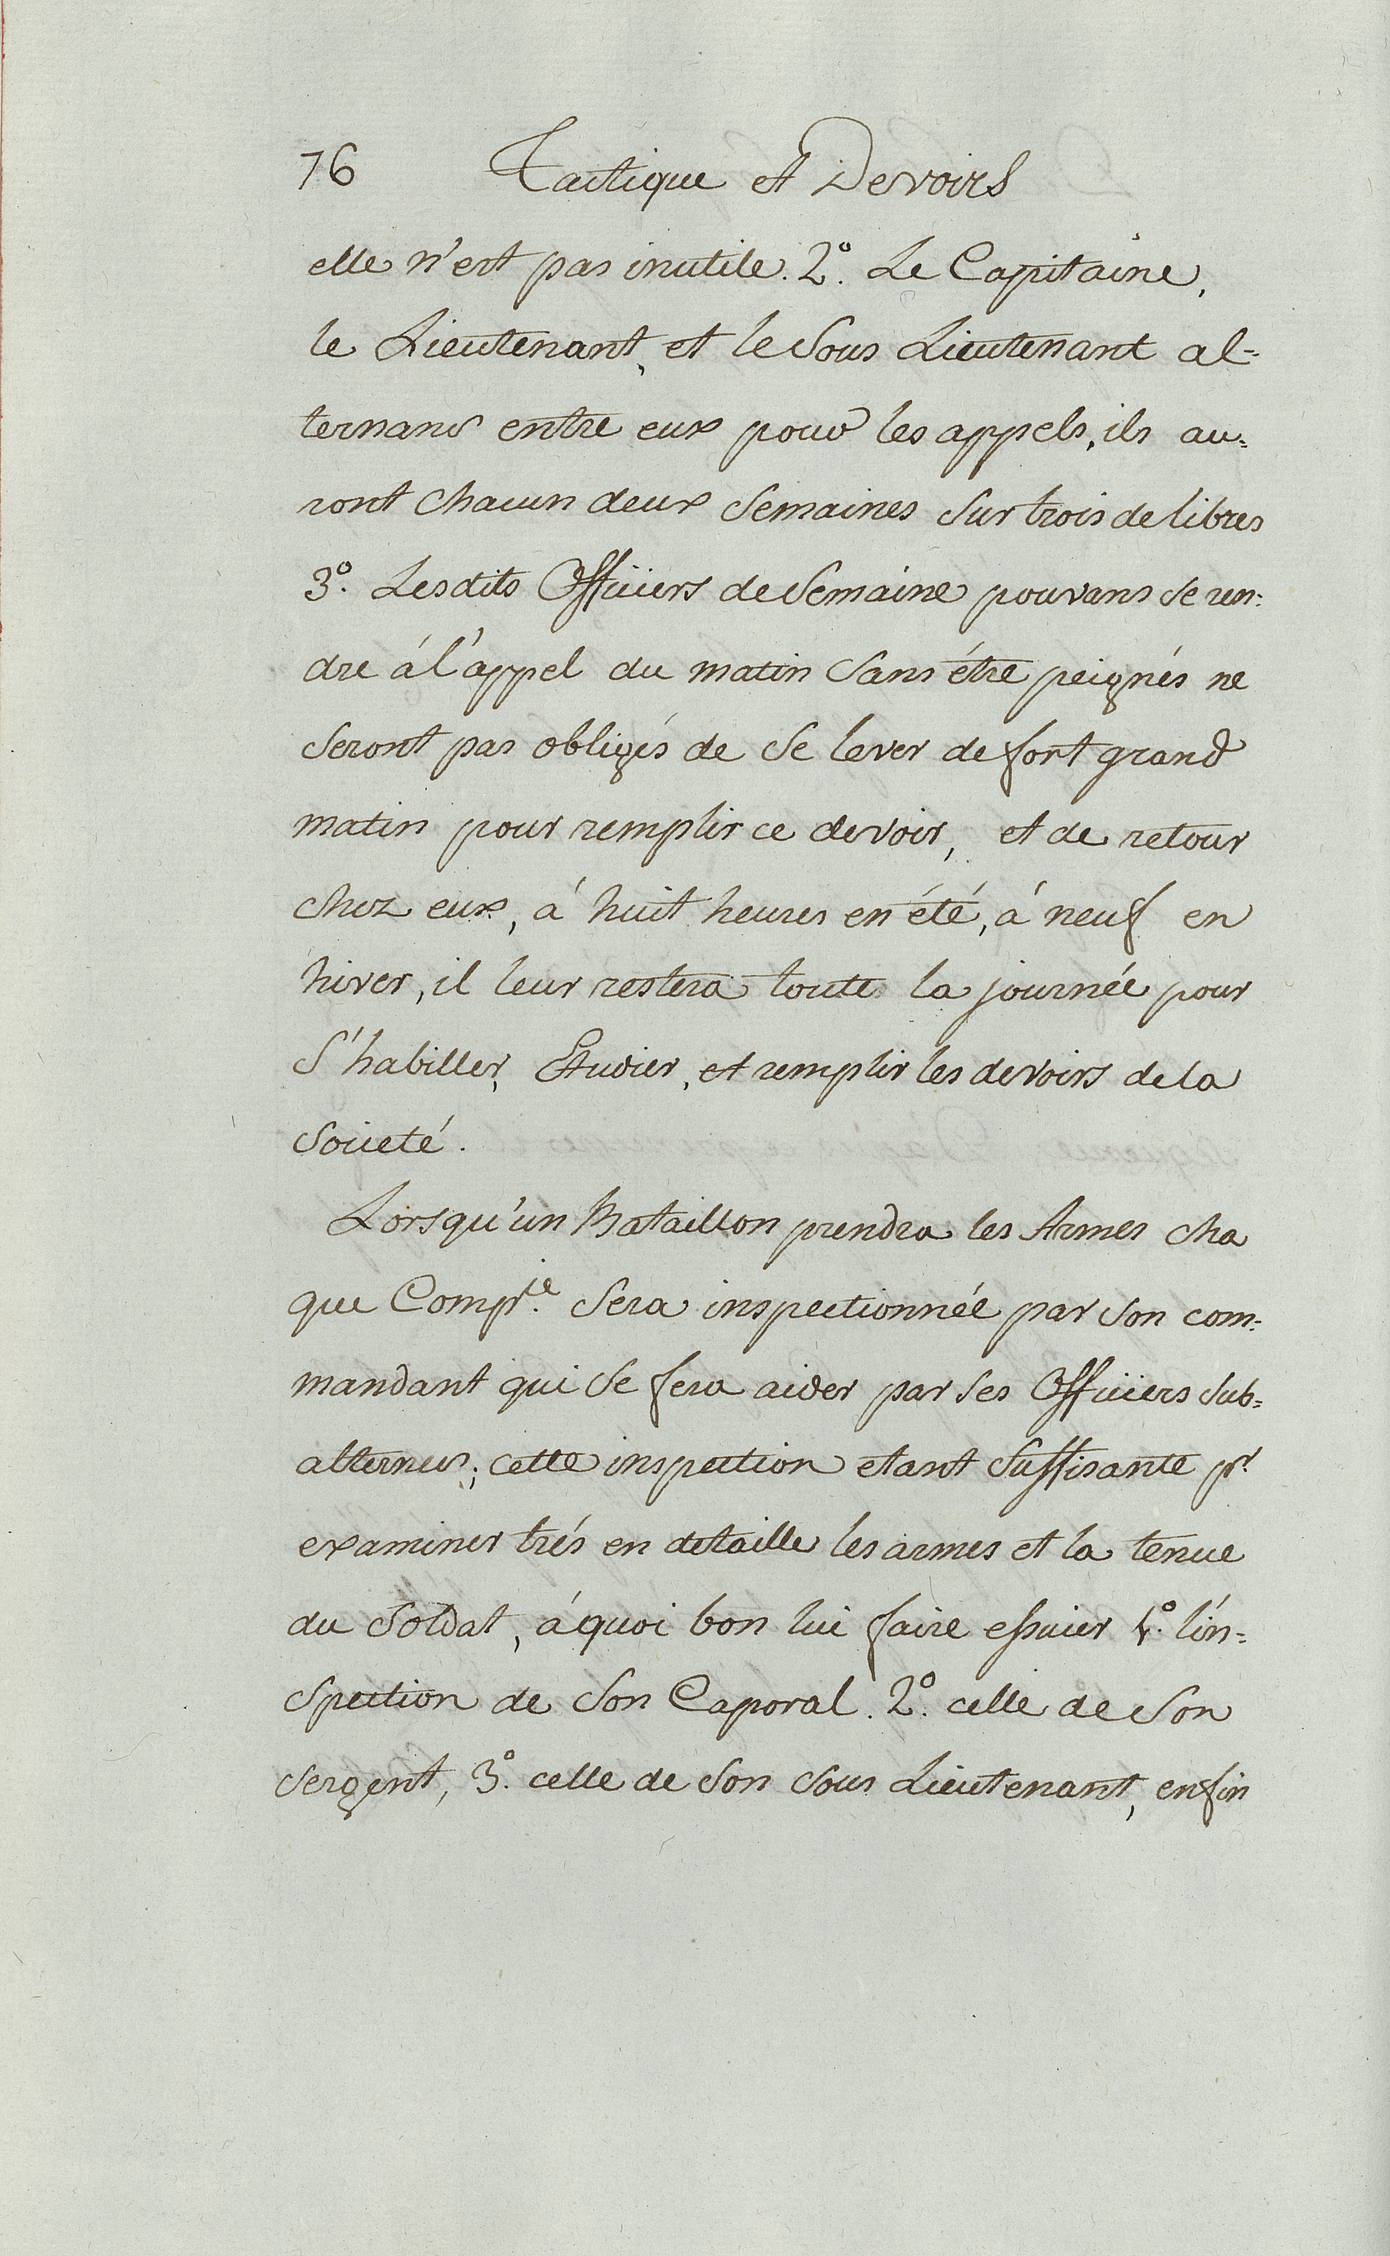 76 Tactique et Devoirs
elle n'est pas inutile. 2º. Le Capitaine,
le Lieutenant, et le Sous Lieutenant al=
ternans entre eux pour les appels, ils au=
ront chacun deux Semaines sur trois de libres
3º. Lesdits Officiers de Semaine pouvans se ren=
dre á l'appel du matin sans étre peignés ne
seront pas obligés de se lever de fort grand
matin pour remplir ce devoir, et de retour
chez eux, á huit heures en été, á neuf en
hiver, il leur restera toute la journée pour
s'habiller, Etudier, et remplir les devoirs de la
societé.
Lorsqu'un Bataillon prendra les Armes cha
que Compie. sera inspectionnée par son com=
mandant qui se fera aider par ses Officiers sub=
alternes; cette inspection etant suffisante pr.
examiner trés en detaille les armes et la tenue
du Soldat, á quoi bon lui faire essuier 1º. l'in=
spection de son Caporal. 2º. celle de son
sergent, 3º. celle de son sous Lieutenant, enfin